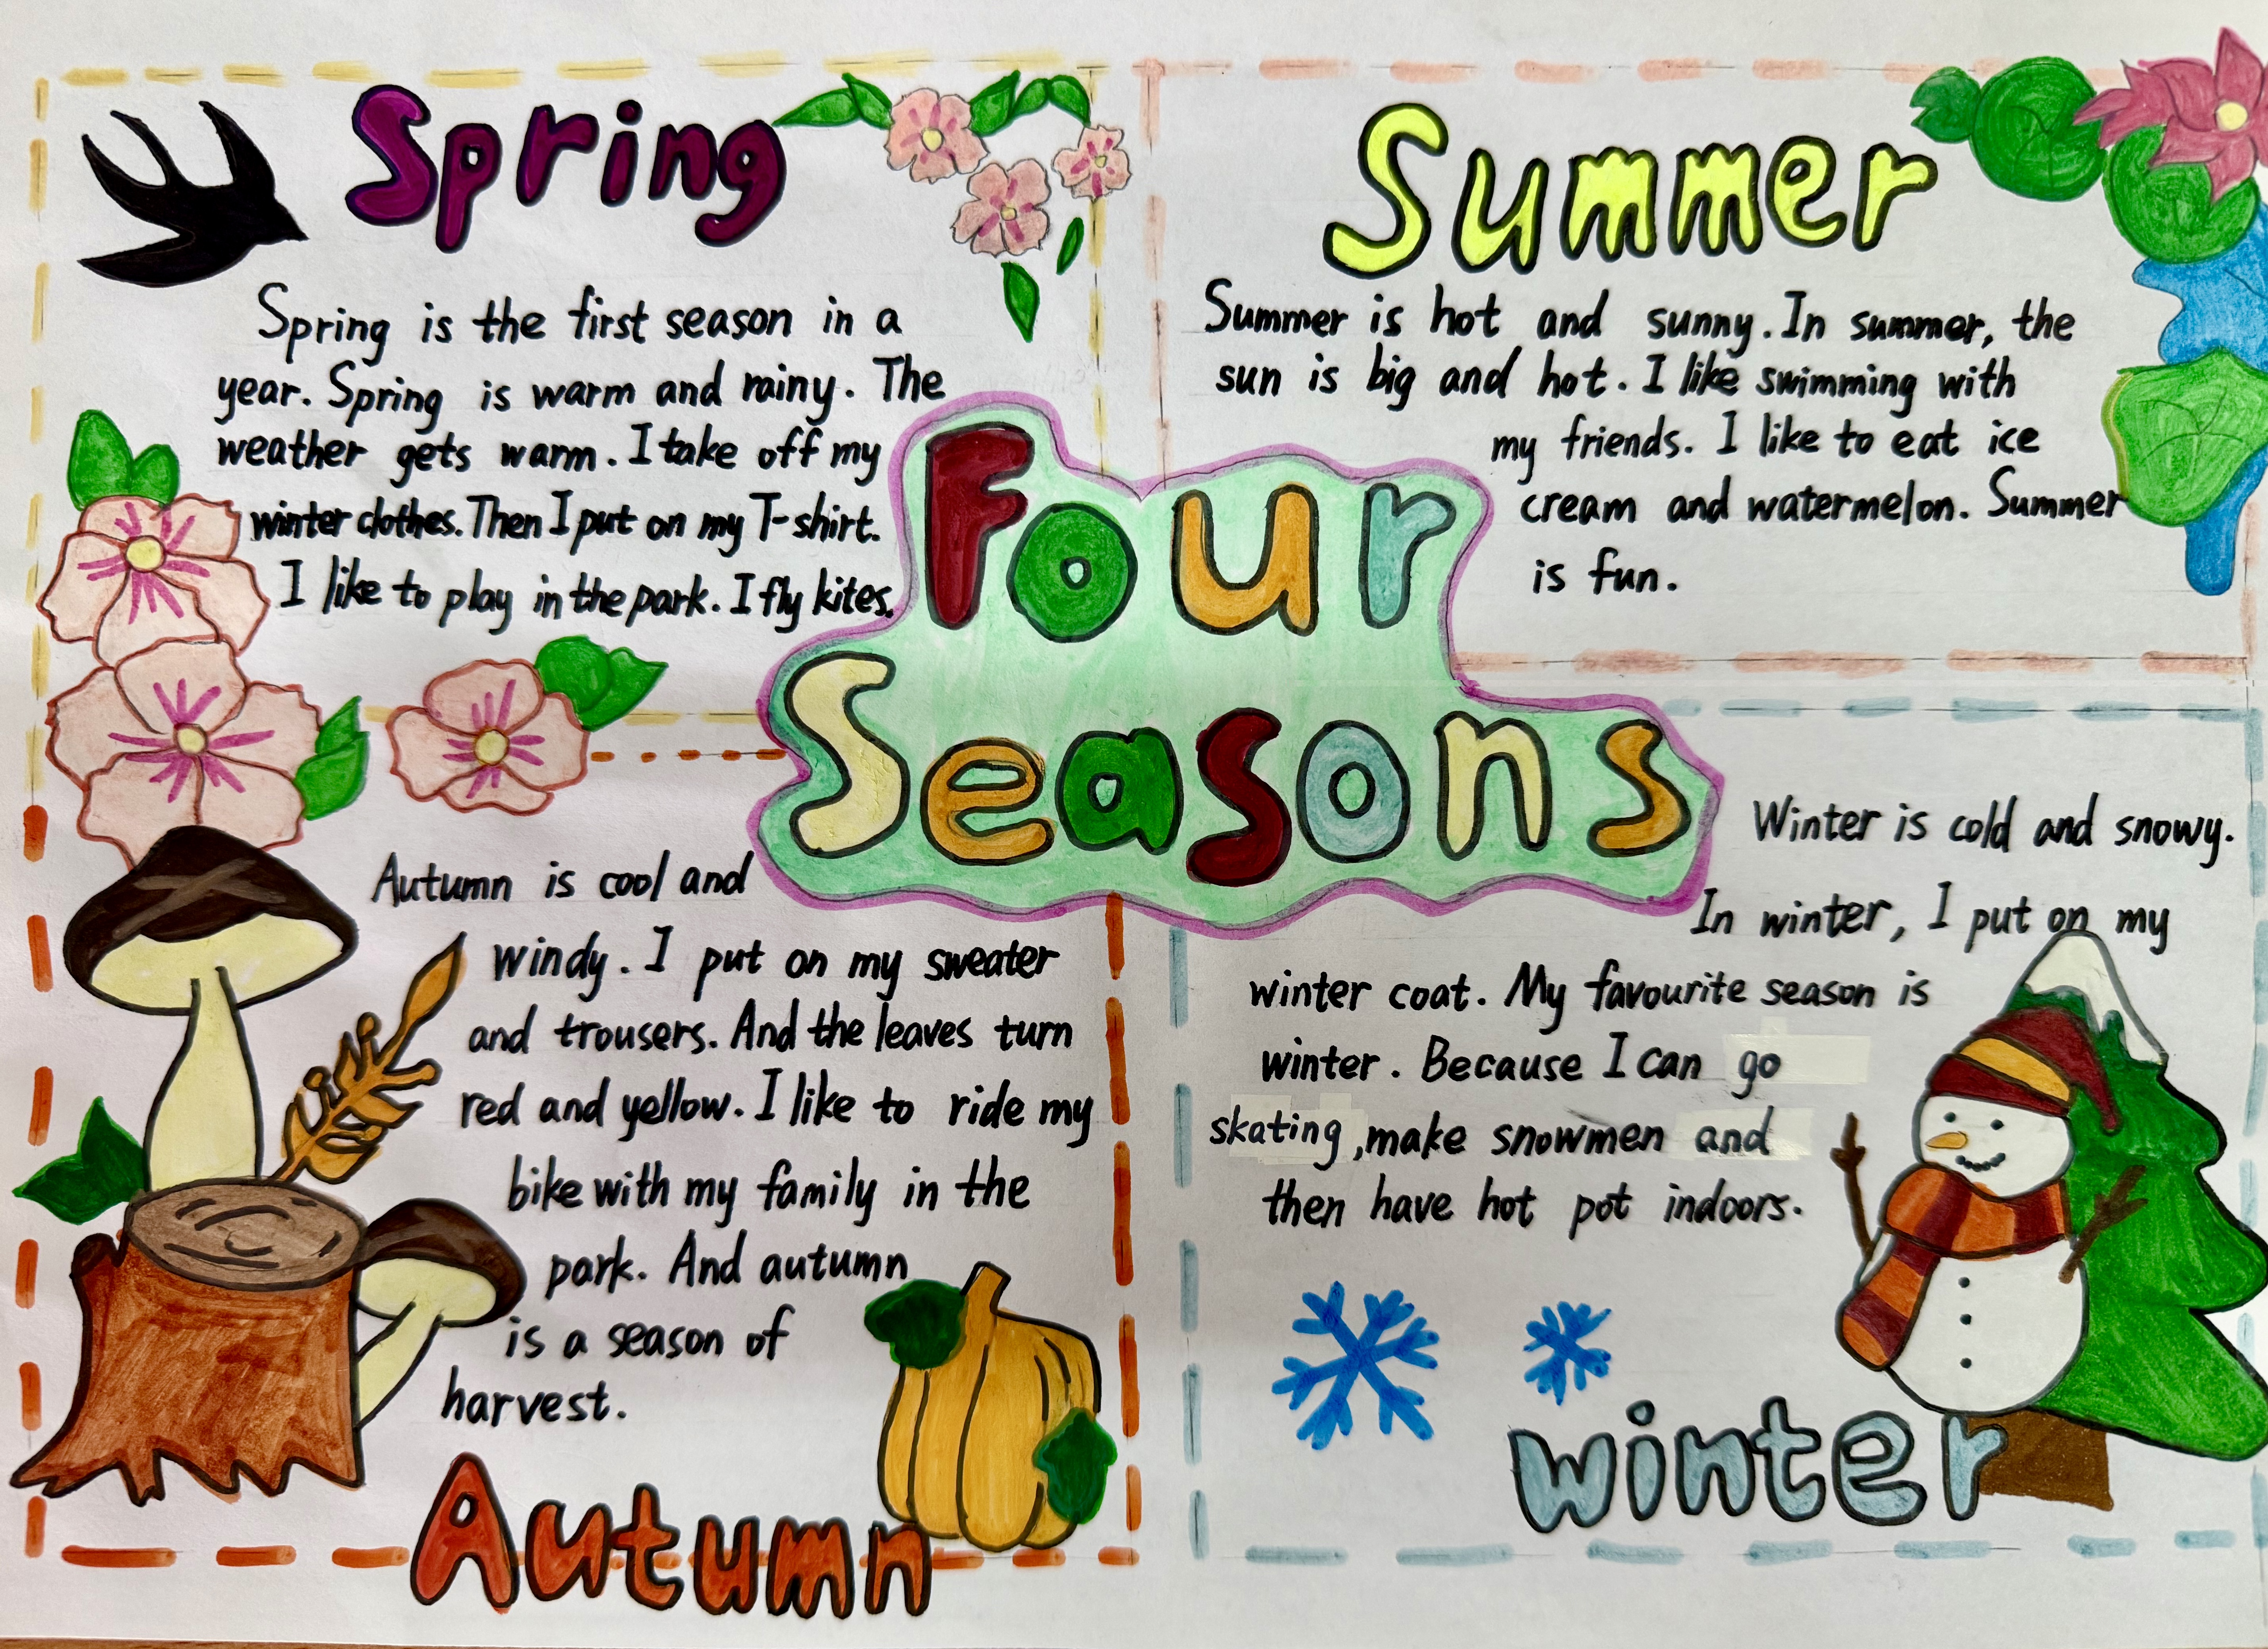 Spring
Spring is the first season in a
year. Spring is warm and rainy. The
weather gets warm. I take off my
winter clothes. Then I put on my T-shirt.
I like to play in the park. I fly kites.
Summer
Summer is hot and sunny. In summer, the
sun is big and hot. I like swimming with
my friends. I like to eat ice
cream and watermelon. Summer
is fun.
Four
Seasons
Autumn is cool and
windy. I put on my sweater
and trousers. And the leaves turn
red and yellow. I like to ride my
bike with my family in the
park. And autumn
is a season of
harvest.
Autumn
Winter is cold and snowy.
In winter, I put on my
winter coat. My favourite season is
winter. Because I can go
skating, make snowmen and
then have hot pot indoors.
winter